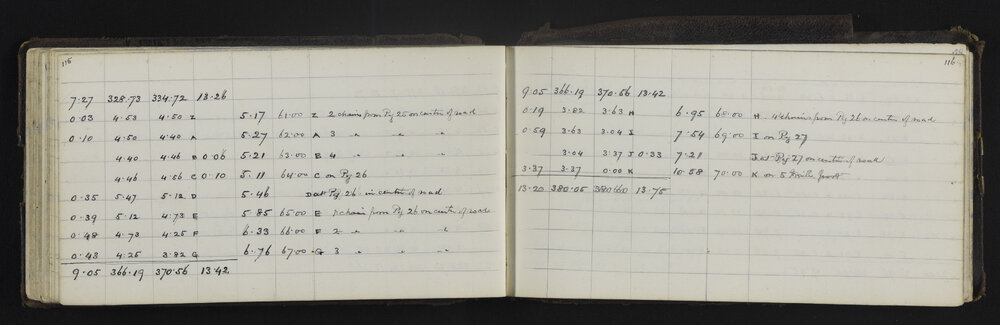 115
7.27 328.73 334.72 13.26
0.03 4.53 4.50 Z 5.17 61.00 Z 2 chains from Pg 25 on centre of road
0.10 4.50 4.40 A 5.27 62.00 A 3 " " "
4.40 4.46 B 0.06 5.21 63.00 B 4 " " "
4.46 4.56 C 0.10 5.11 64.00 C on Pg 26
0.35 5.47 5.12 D 5.46 D at Pg 26 in centre of road
0.39 5.12 4.73 E 5.85 65.00 E 1 chain from Pg 26 on centre of road
0.48 4.73 4.25 F 6.33 66.00 F 2 " " "
0.43 4.25 3.82 G 6.76 67.00 G 3 " " "
9.05 366.19 370.56 13.42
116
9.05 366.19 370.56 13.42
0.19 3.82 3.63 H 6.95 68.00 H 4 chains from Pg 26 on centre of road
0.59 3.63 3.04 I 7.54 69.00 I on Pg 27
3.04 3.37 J 0.33 7.21 J at Pg 27 on centre of road
3.37 3.37 0.00 K 10.58 70.00 K on 5 post
13.20 380.05 380.60 13.75